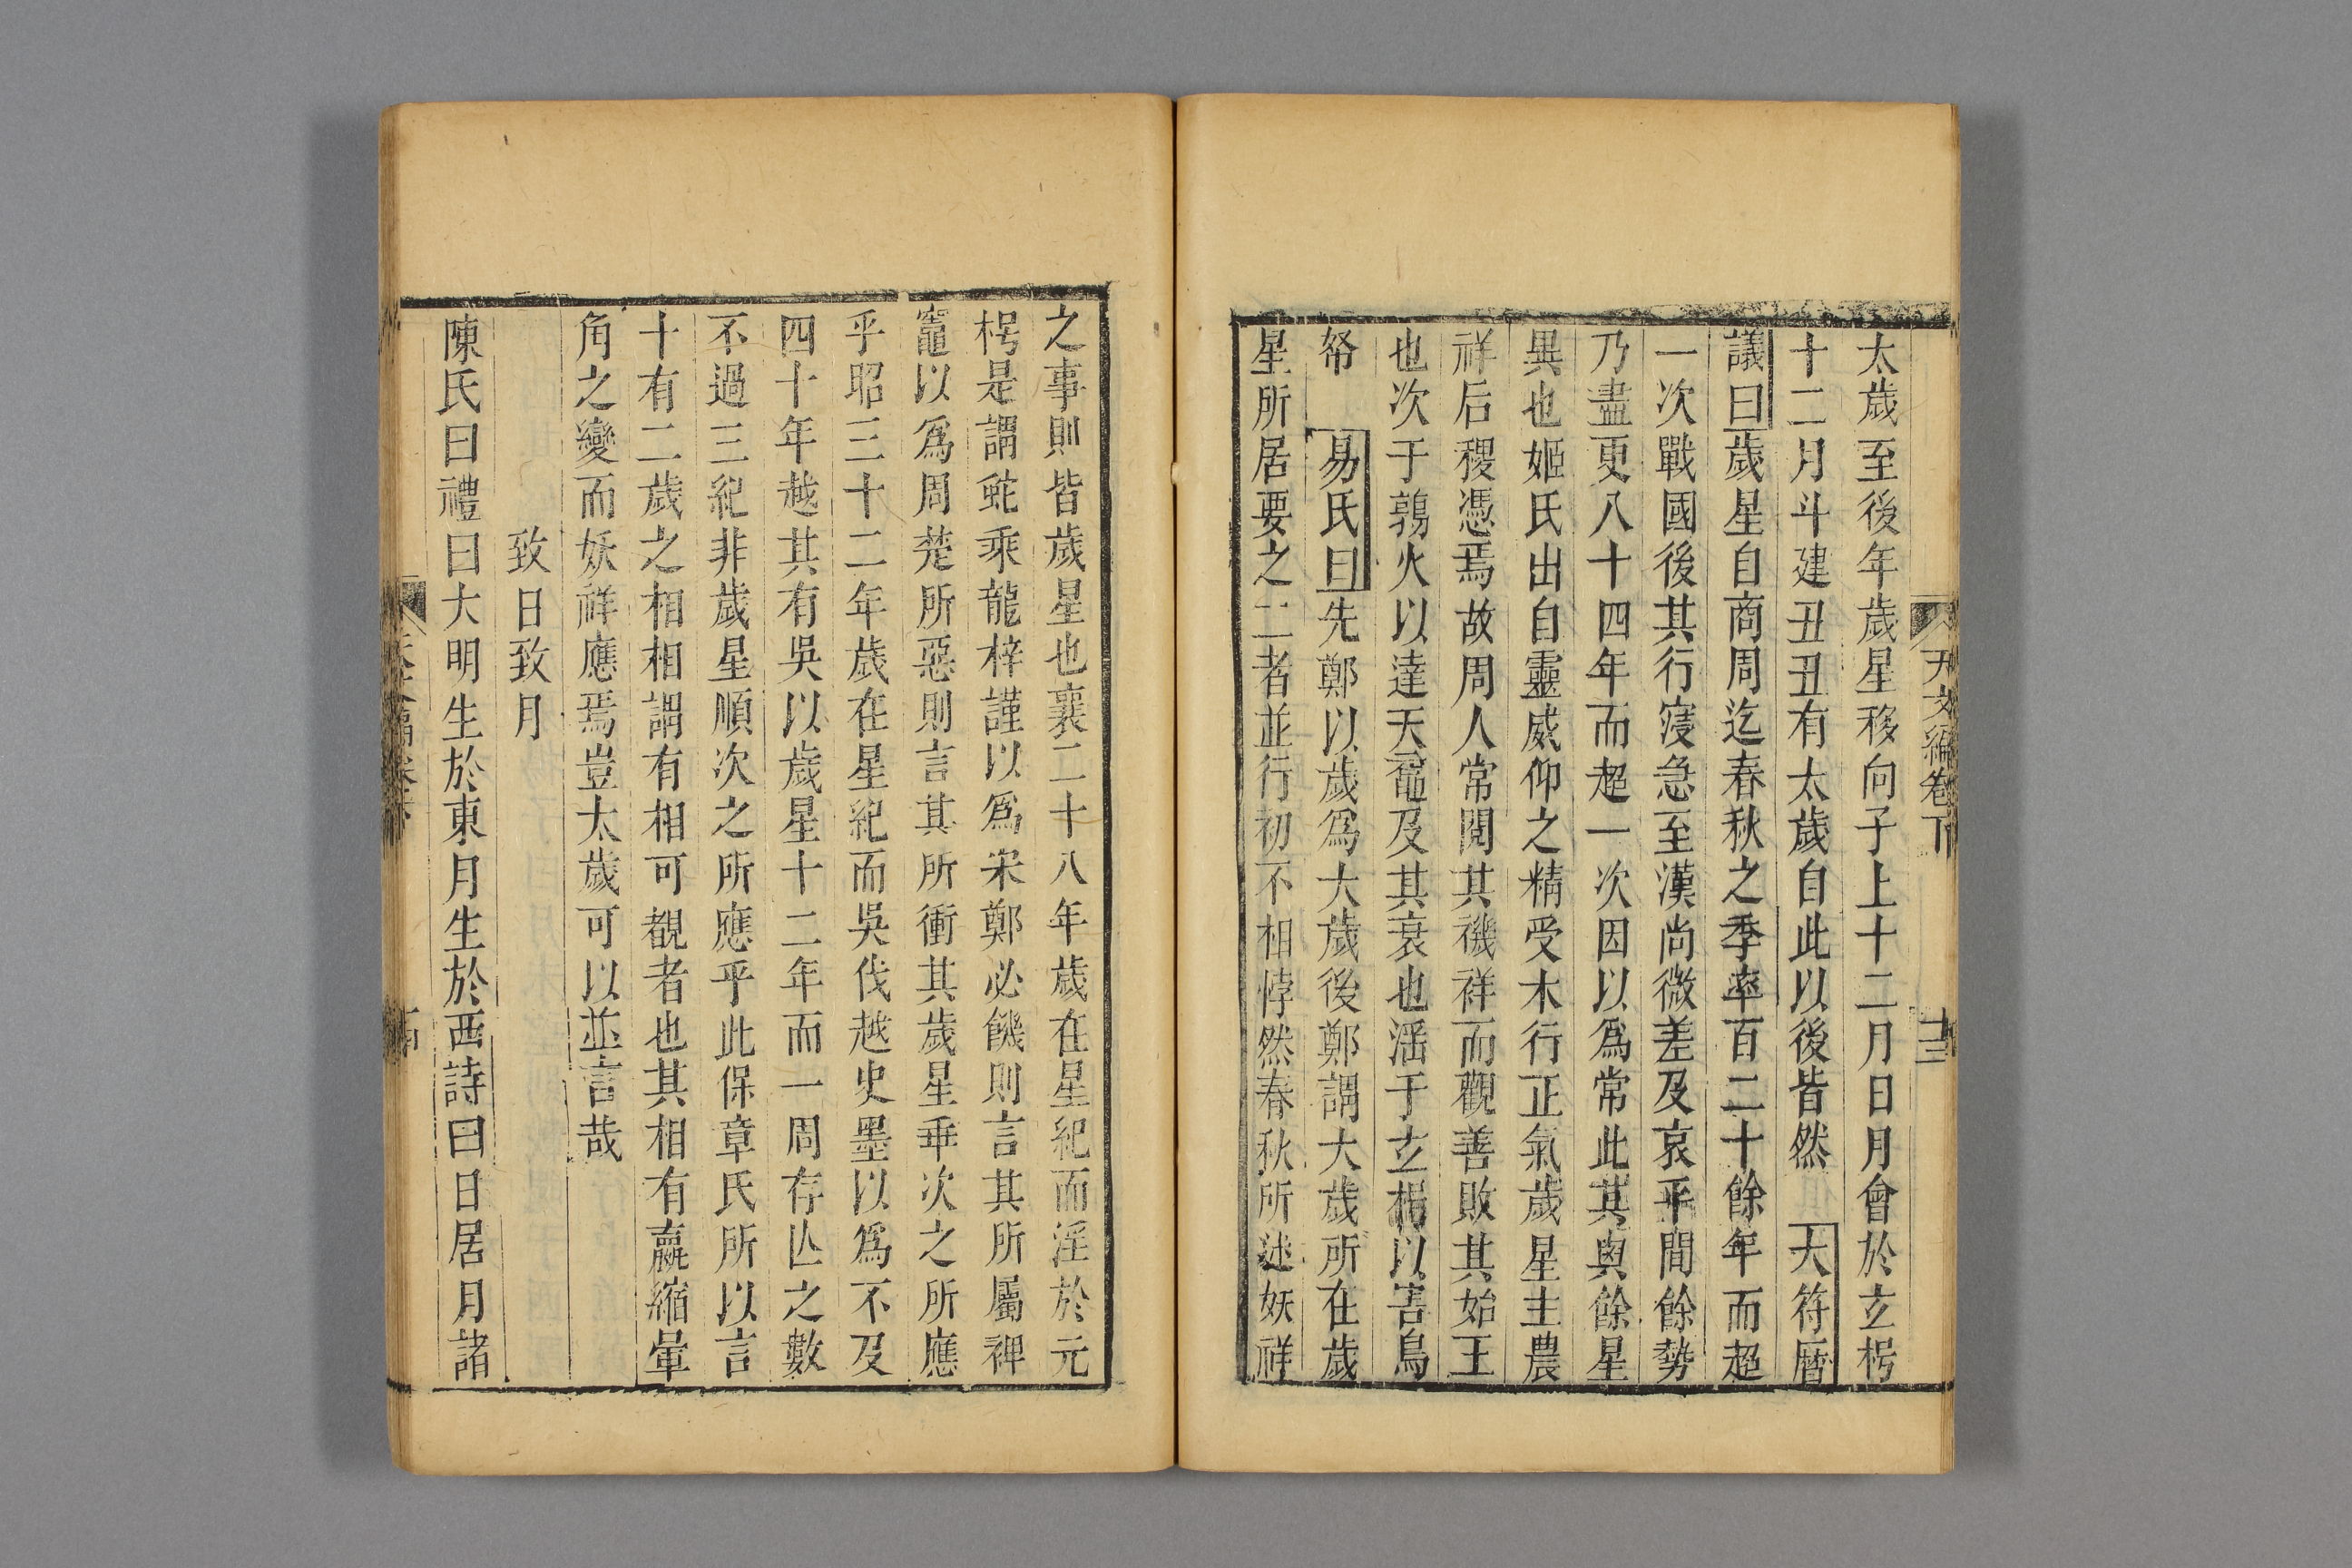 天文編卷下
十三
太歲至後年歲星移向子上十二月日月會於玄枵
十二月斗建丑丑有太歲自此以後皆然 大符曆
議曰歲星自商周迄春秋之季率百二十餘年而超
一次戰國後其行寖急至漢尚微差及哀平間餘勢
乃盡更八十四年而超一次因以爲常此其與餘星
異也姬氏出自靈威仰之精受木行正氣歲星主農
祥后稷憑焉故周人常閱其禨祥而觀善敗其始王
也次于鶉火以達天黿及其衰也淫于玄枵以害鳥
帑 易氏曰先鄭以歲爲大歲後鄭謂大歲所在歲
星所居要之二者並行初不相悖然春秋所述妖祥
之事則皆歲星也襄二十八年歲在星紀而淫於元
枵是謂蛇乘龍梓謹以爲宋鄭必饑則言其所屬裨
竈以爲周楚所惡則言其所衝其歲星垂次之所應
乎昭三十二年歲在星紀而吳伐越史墨以爲不及
四十年越其有吳以歲星十二年而一周存亾之數
不過三紀非歲星順次之所應乎此保章氏所以言
十有二歲之相相謂有相可覩者也其相有羸縮暈
角之變而妖祥應焉豈太歲可以並言哉
致日致月
陳氏曰禮曰大明生於東月生於西詩曰日居月諸